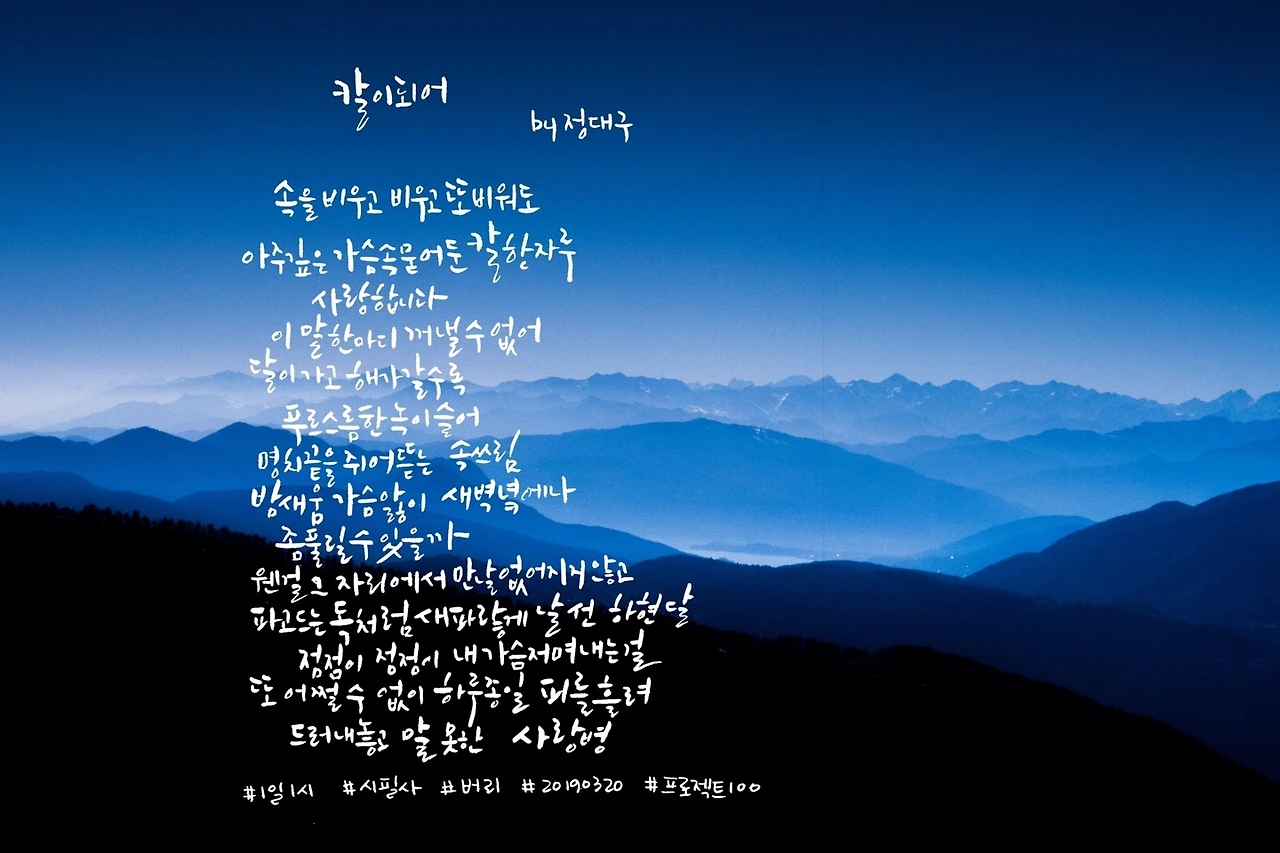 칼이되어
by 정대구
속을 비우고 비우고 또 비워도
아주깊은 가슴속묻어둔 칼 한자루
사랑합니다
이 말 한마디 꺼낼 수 없어
달이 가고 해가 갈수록
푸르스름한 녹이 슬어
명치끝을 쥐어뜯는 속쓰림
밤새움 가슴앓이 새벽녘에나
좀풀릴 수 있을까
웬걸 그 자리에서 만날 없어지지 않고
파고드는 독처럼 새파랗게 날 선 하현달
점점이 정정시 내 가슴저며내는걸
또 어쩔 수 없이 하루종일 피를 흘려
드러내놓고 말 못한 사랑병
#1일1시 #시필사 #버리 #20190320 #프로젝트100